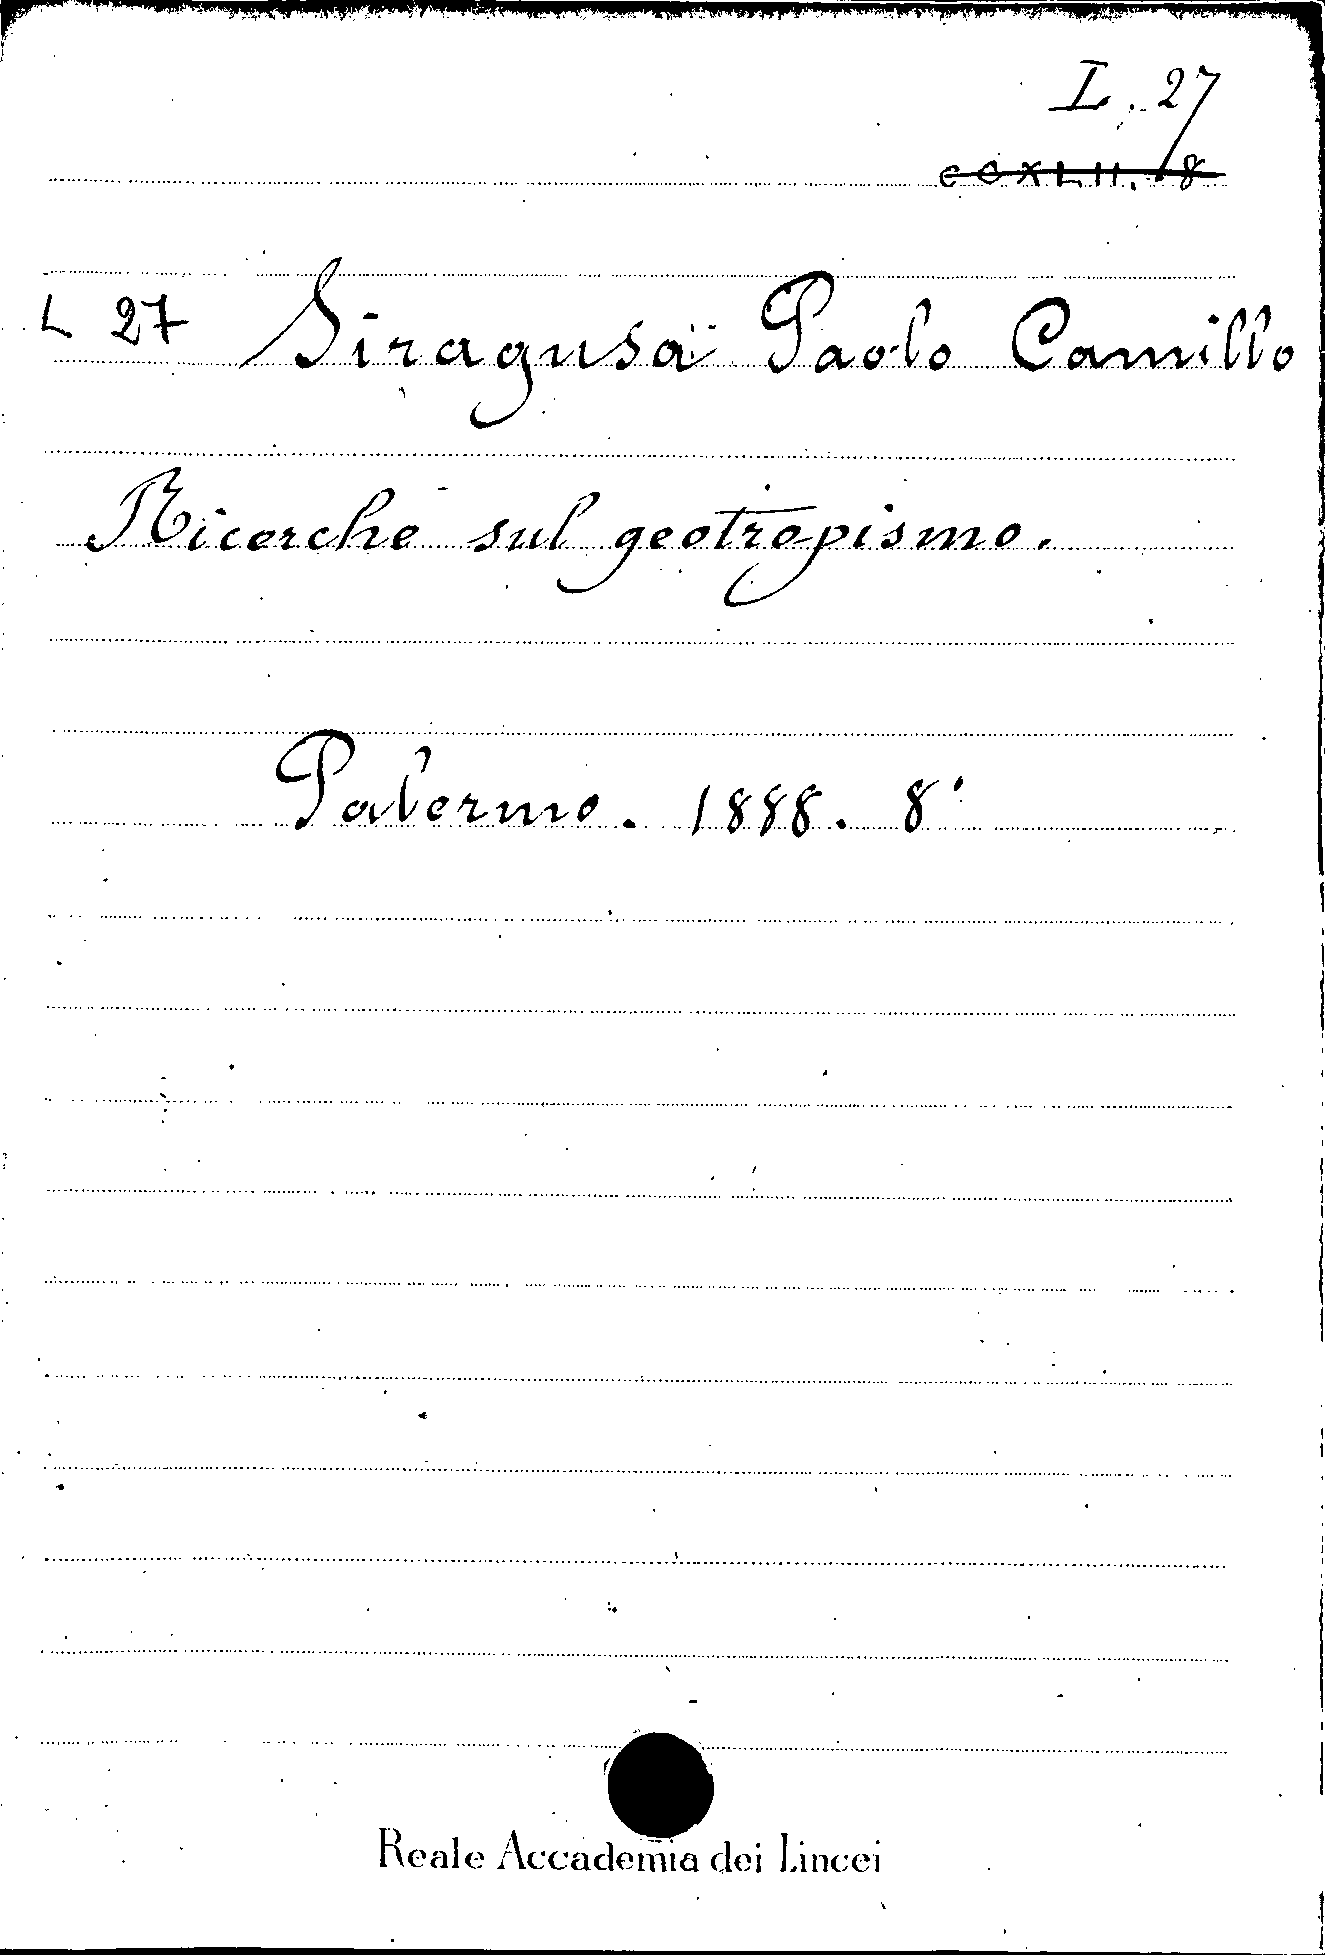 L. 27
CCXLII. 18
L 27 Siragusa Paolo Camillo
Ricerche sul geotropismo.
Palermo. 1888. 8°
Reale Accademia dei Lincei